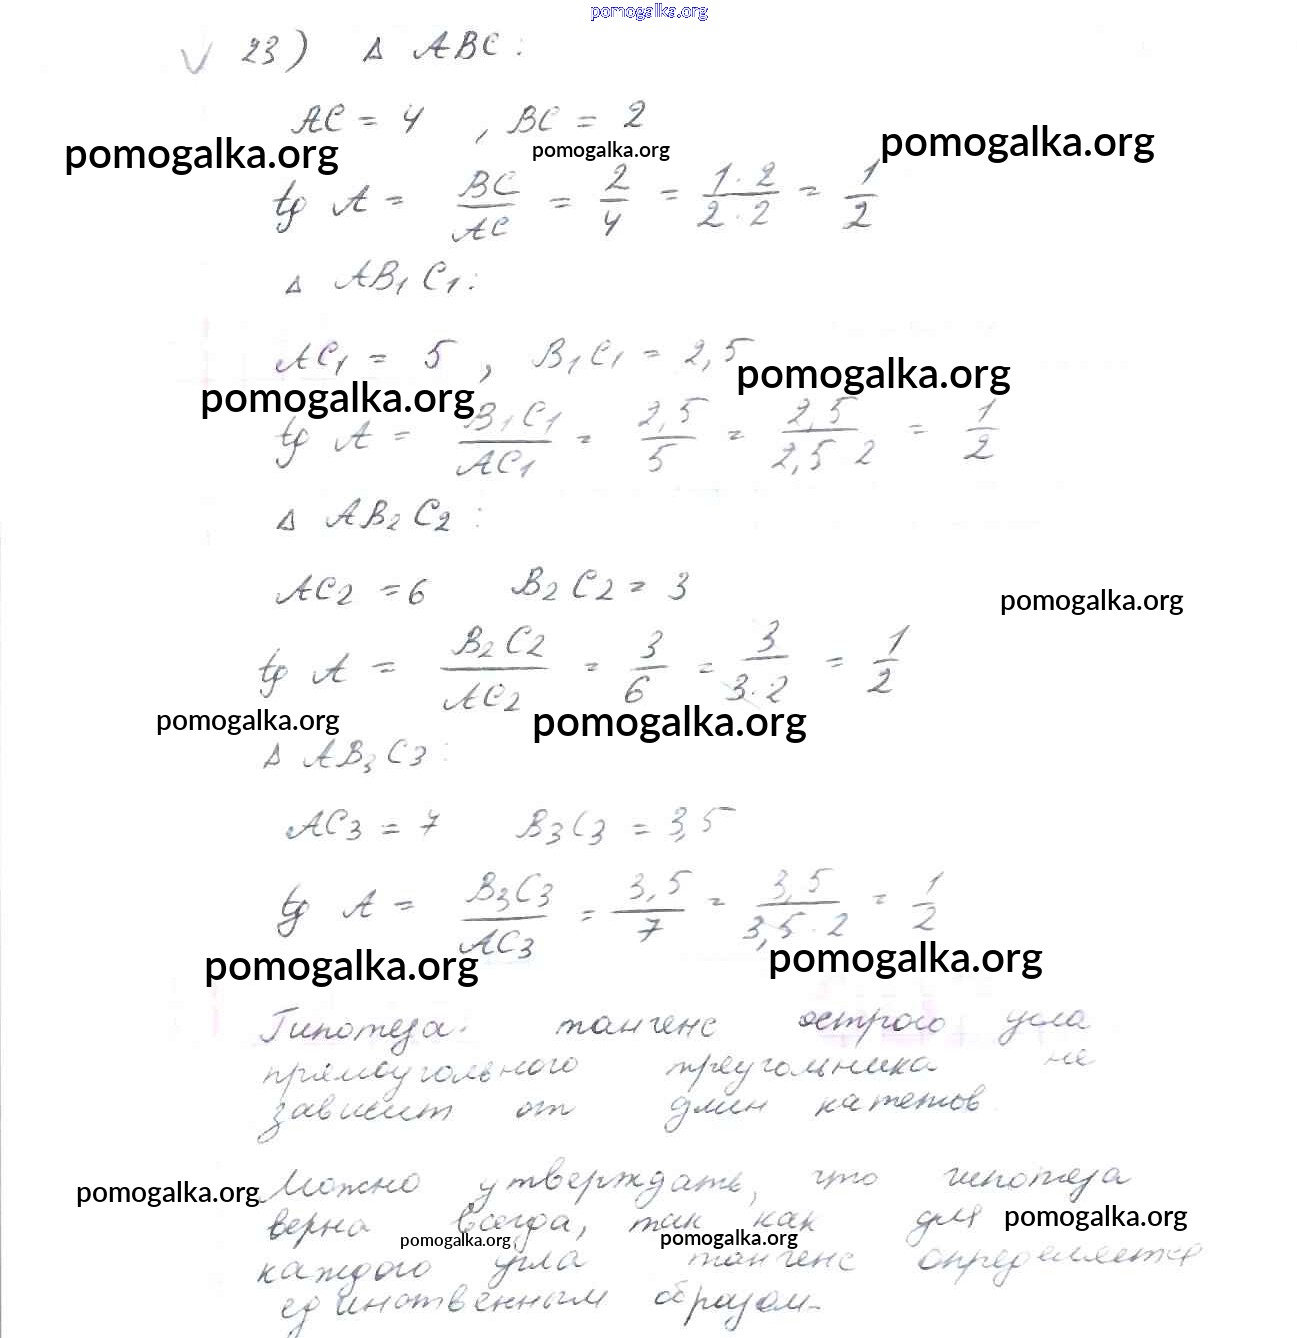 pomogalka.org
23) Δ ABC:
AC = 4 , BC = 2
pomogalka.org pomogalka.org pomogalka.org
tg A = BC/AC = 2/4 = 1·2/2·2 = 1/2
Δ AB₁C₁:
AC₁ = 5 , B₁C₁ = 2,5
pomogalka.org pomogalka.org
tg A = B₁C₁/AC₁ = 2,5/5 = 2,5/2,5 2 = 1/2
Δ AB₂C₂:
AC₂ = 6 B₂C₂ = 3
pomogalka.org
tg A = B₂C₂/AC₂ = 3/6 = 3/3·2 = 1/2
pomogalka.org pomogalka.org
Δ AB₃C₃:
AC₃ = 7 B₃C₃ = 3,5
tg A = B₃C₃/AC₃ = 3,5/7 = 3,5/3,5·2 = 1/2
pomogalka.org pomogalka.org
Гипотеза. тангенс острого угла
прямоугольного треугольника не
зависит от длин катетов.
Можно утверждать, что гипотеза
pomogalka.org
верна всегда, так как для
pomogalka.org
pomogalka.org pomogalka.org
каждого угла тангенс определяется
единственным образом.